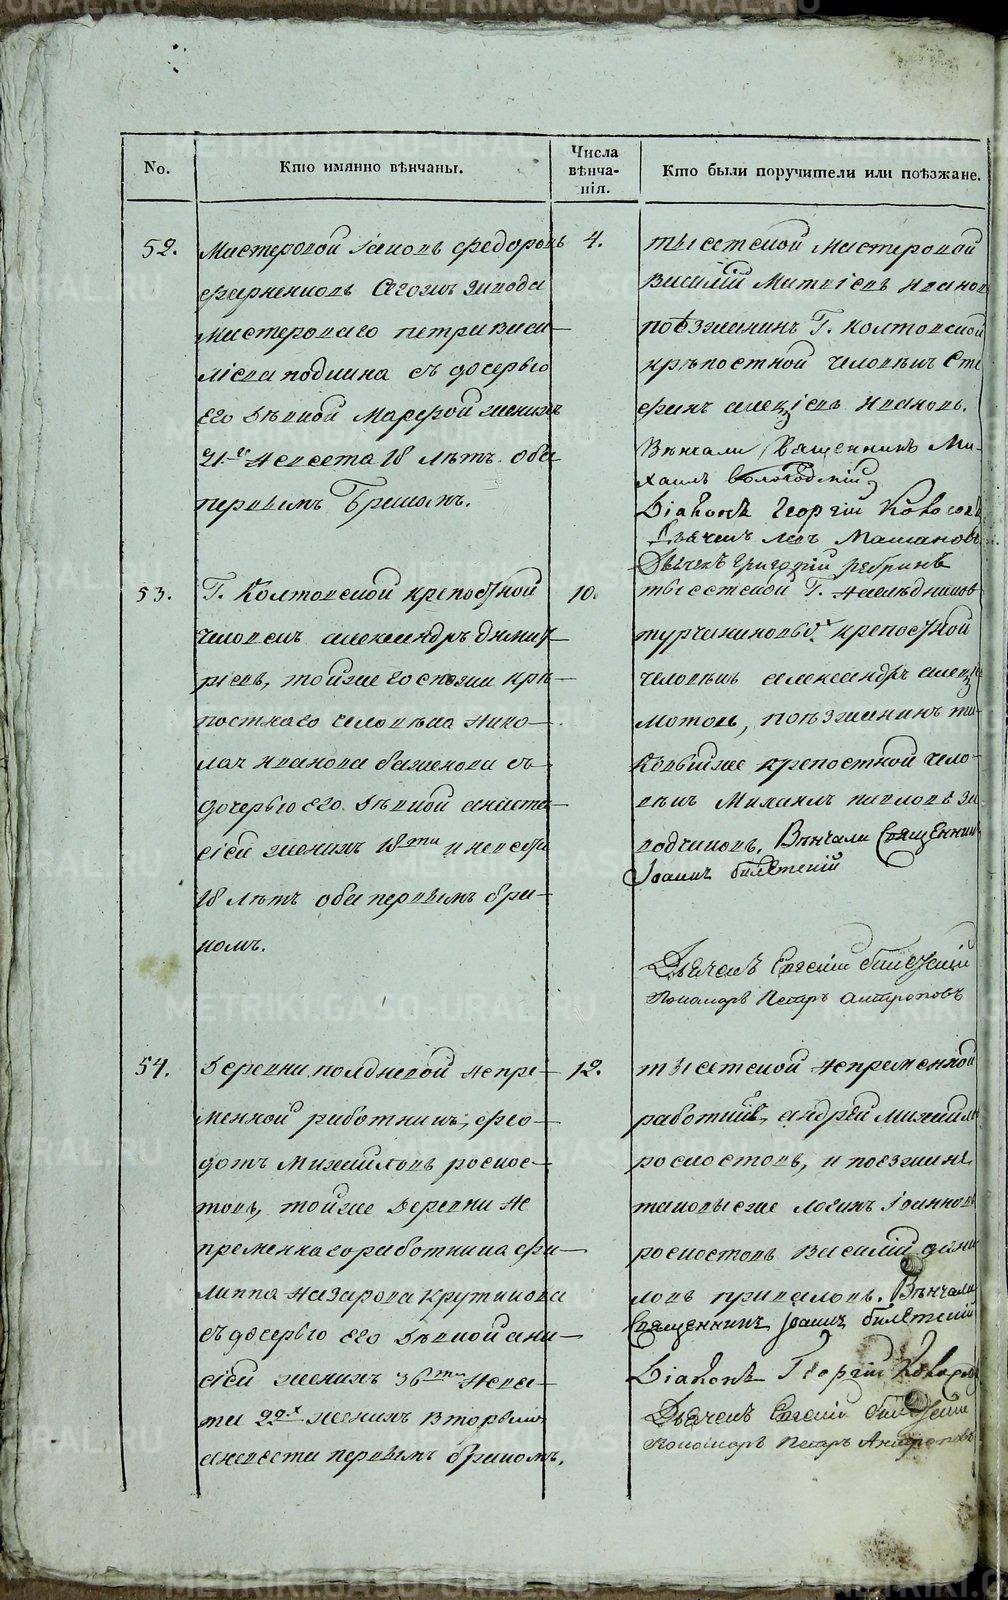 No.
Кто имянно вѣнчаны.
Числа
вѣнча-
нія.
Кто были поручители или поѣзжане.
52.
Мастеровой Іаковъ Федоровъ
сегожъ завода
мастероваго Петра Васи-
лiева с дочерью
его дѣвкой Марфой женихъ
21.го невеста 18 лѣтъ оба
первымъ бракомъ.
4.
тысетской мастеровой
Василій Матвіевъ Ивановъ
поѣзжанинъ Г. Колтовской
крѣпостной человѣкъ Сте
фанъ Алексіевъ Ивановъ.
Вѣнчали Священникъ Ми-
хаилъ Вологодскій
Діаконъ Георгій
Дьячекъ Левъ
Дьячекъ Григорій Ребринъ
53.
Г. Колтовской крепостной
человекъ Александръ Димит-
ріевъ, тойже госпожи крѣ-
постнаго человѣка Нико-
лая Иванова Баженова съ
дочерью его дѣвкой Анаста-
сіей женихъ 18ти и невеста
18 лѣтъ оба первымъ бра-
комъ.
10.
тысетской Г. наслѣдниковъ
Турчаниновыхъ крепостной
человѣкъ Александръ
поѣзжанинъ та-
ковыйже крепостной чело-
вѣкъ Михаилъ Павловъ За
водчиковъ, Вѣнчали Священникъ
Іоаннъ Билетскій
Дьячекъ Евгеній Билетскій
Пономарь Петръ Антроповъ
54.
Деревни Полдневой непре-
менной работникъ Фео-
дотъ Михайловъ Роспос-
товъ, тойже деревни не
пременнаго работника Фи-
липпа Назарова Крутикова
съ дочерью его дѣвкой Ани-
сіей женихъ 36ти неве-
ста 22хъ женихъ вторымъ
а невеста первымъ бракомъ.
12.
тысетской непременной
работникъ Андрей Михайло
Роспостовъ, и поезжане
таковыеже Логинъ Іоанновъ
Роспостовъ Василій Дани
ловъ Приваловъ. Вѣнчали
Священникъ Іоаннъ Билетскій
Діаконъ Георгій
Дьячекъ Евгеній Билетскій
Пономарь Петръ Антроповъ
METRIKI.GASO-URAL.RU